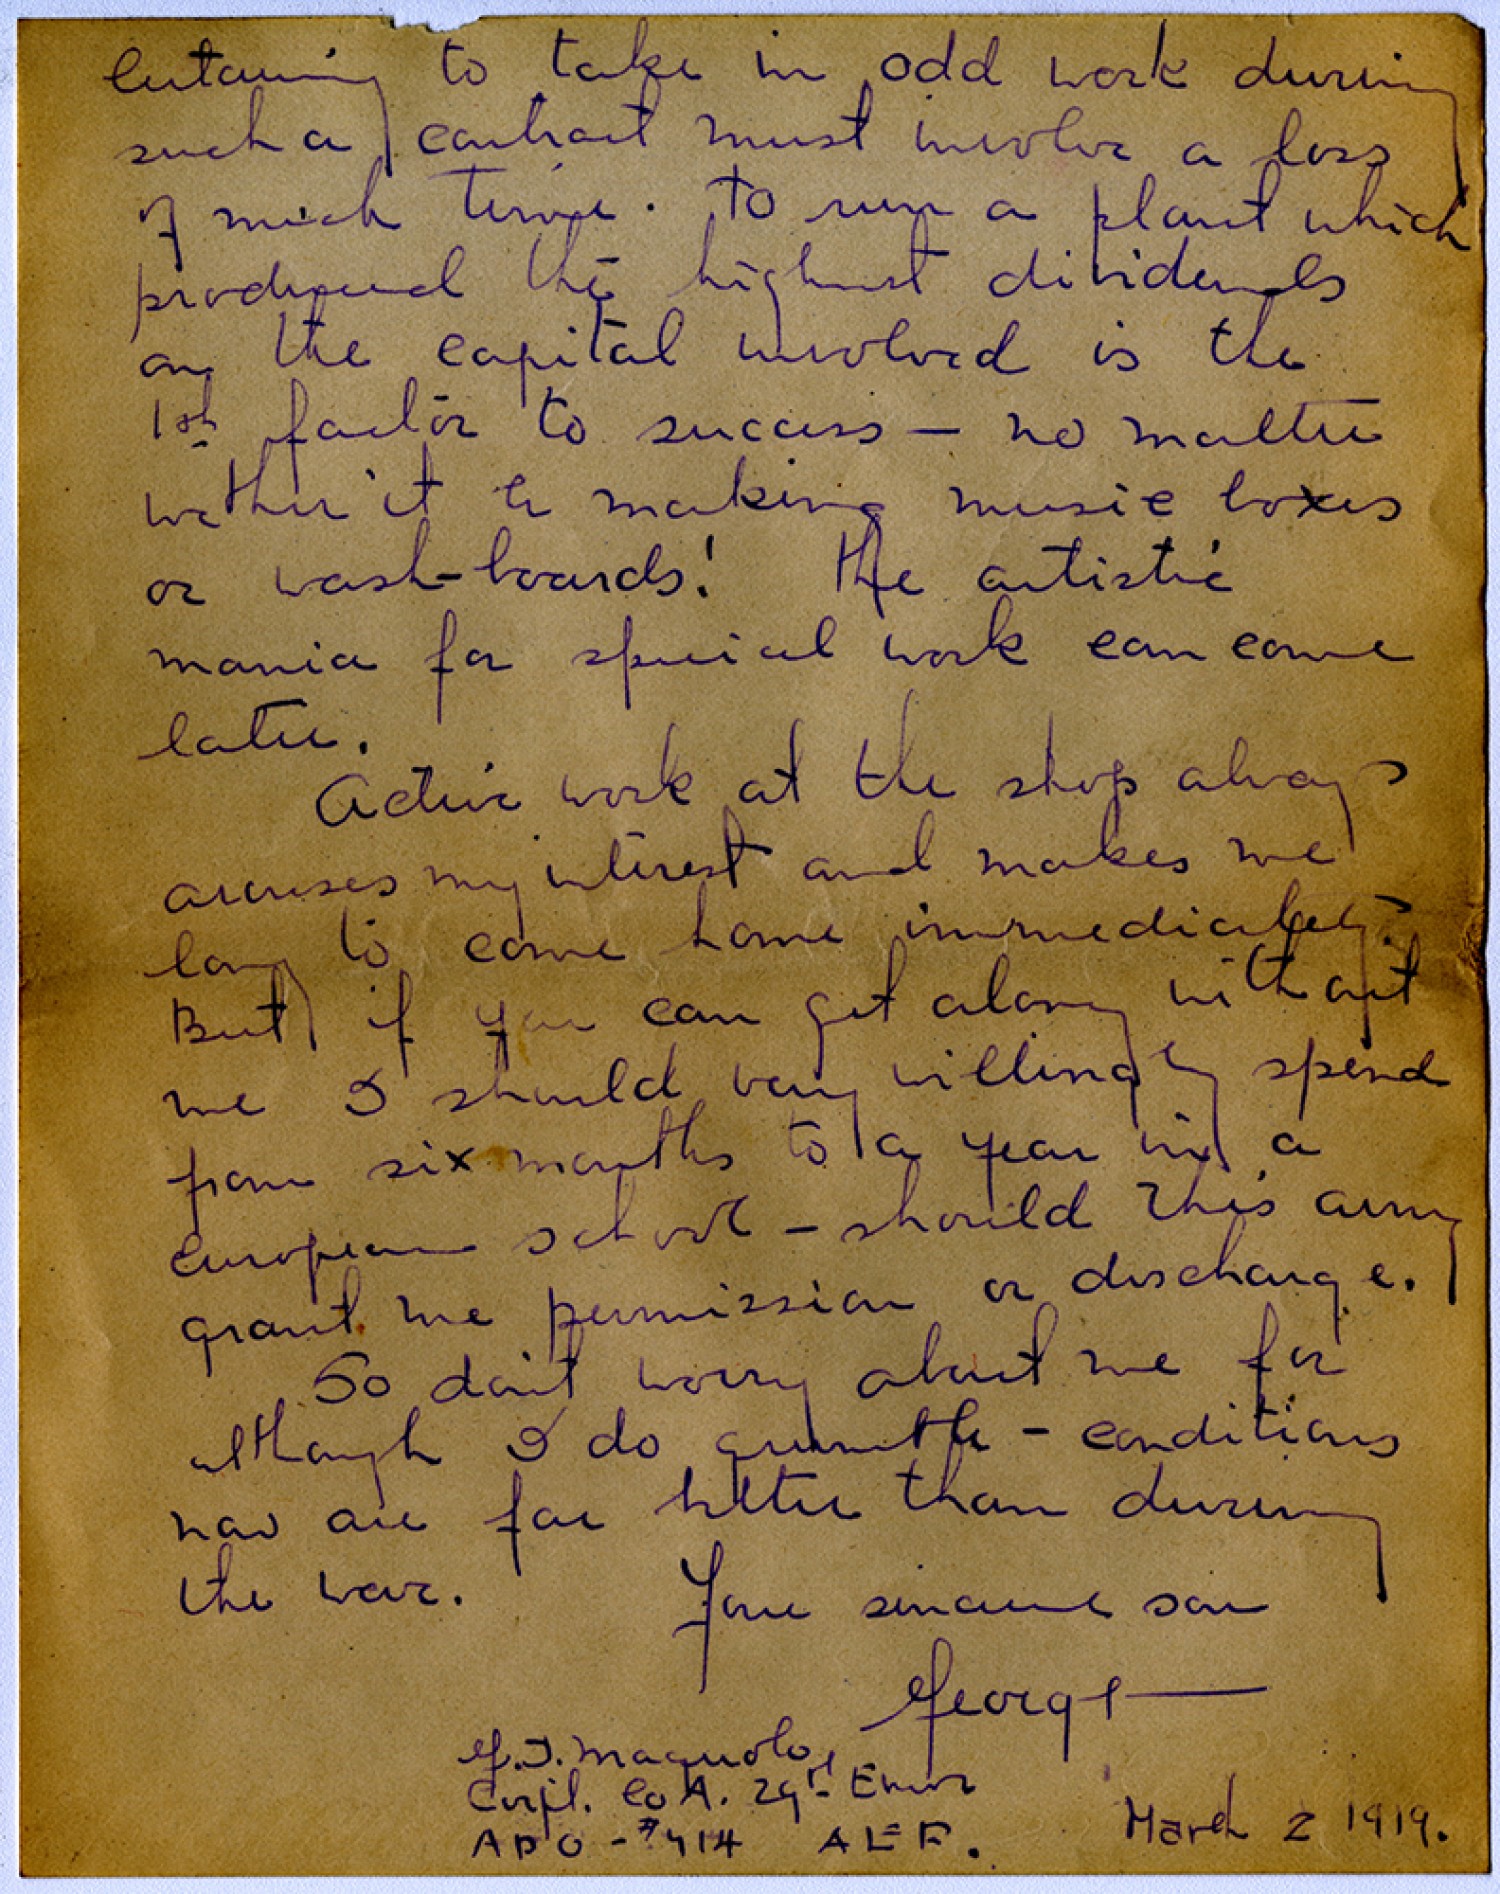 to take in odd work during
such a contract must involve a loss
of much time. To run a plant which
produced the highest dividends
on the capital involved is the
1st factor to success — no matter
wether it be making music boxes
or wash-boards! The artistic
mania for special work can come
later.
Active work at the shop always
arouses my interest and makes me
long to come home immediately.
But if you can get along without
me I should very willingly spend
from six months to a year in a
European school — should this army
grant me permission or discharge.
So don't worry about me for
although I do grumble — conditions
now are far better than during
the war. Your sincere son
George
G. J. Magnolo
Corpl. Co A. 29th Engr
APO - #714 AEF.
March 2 1919.